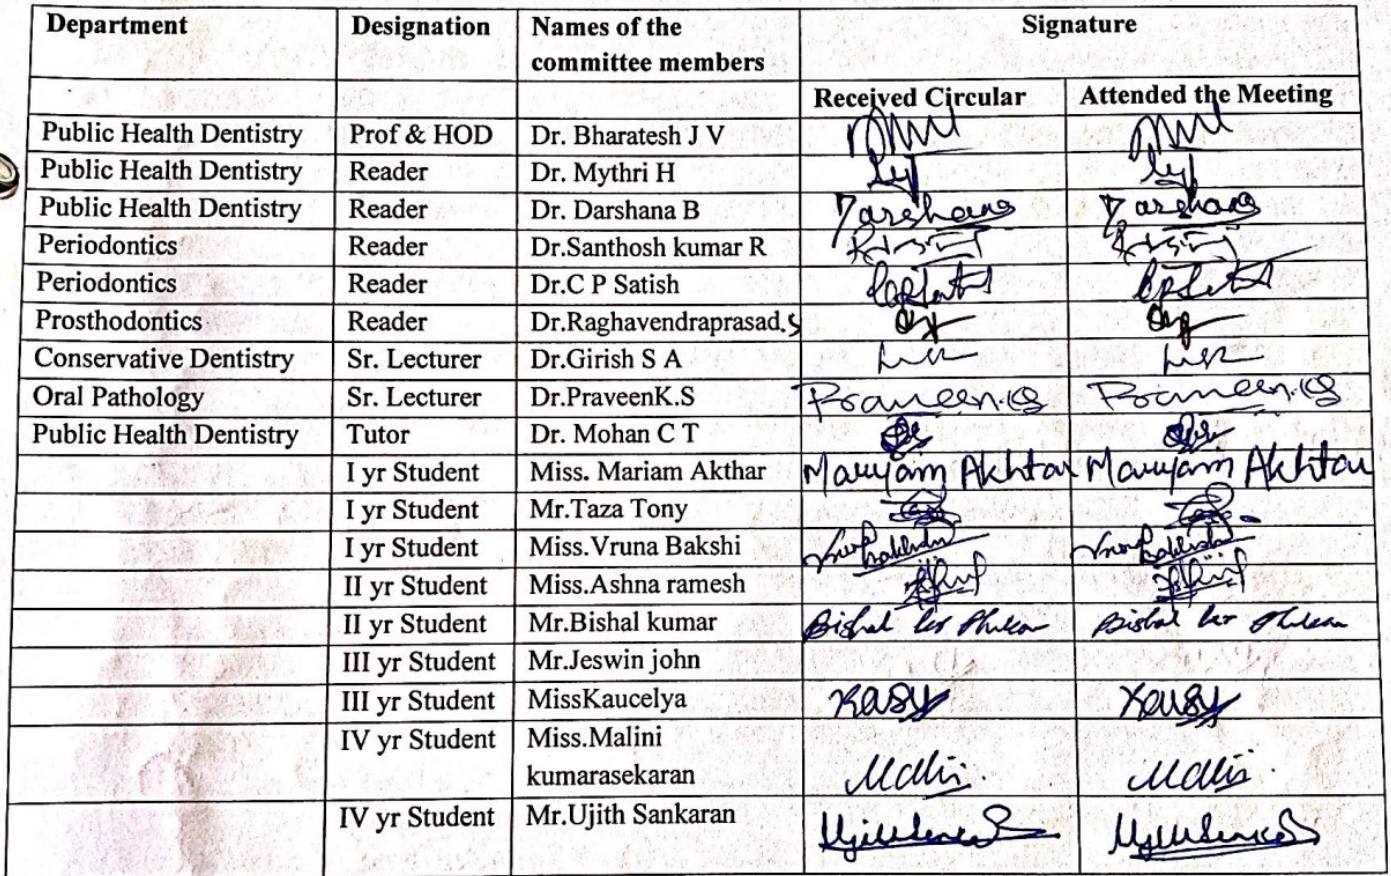 Department Designation Names of the committee members Signature
Received Circular Attended the Meeting
Public Health Dentistry Prof & HOD Dr. Bharatesh J V
Public Health Dentistry Reader Dr. Mythri H
Public Health Dentistry Reader Dr. Darshana B Darshana Darshana
Periodontics Reader Dr.Santhosh kumar R
Periodontics Reader Dr.C P Satish
Prosthodontics Reader Dr.Raghavendraprasad.S
Conservative Dentistry Sr. Lecturer Dr.Girish S A
Oral Pathology Sr. Lecturer Dr.PraveenK.S Praveen.KS Praveen.KS
Public Health Dentistry Tutor Dr. Mohan C T
I yr Student Miss. Mariam Akthar Maryam Akhtar Maryam Akhtar
I yr Student Mr.Taza Tony
I yr Student Miss.Vruna Bakshi
II yr Student Miss.Ashna ramesh
II yr Student Mr.Bishal kumar Bishal kr Bishal kr
III yr Student Mr.Jeswin john
III yr Student MissKaucelya
IV yr Student Miss.Malini kumarasekaran
IV yr Student Mr.Ujith Sankaran